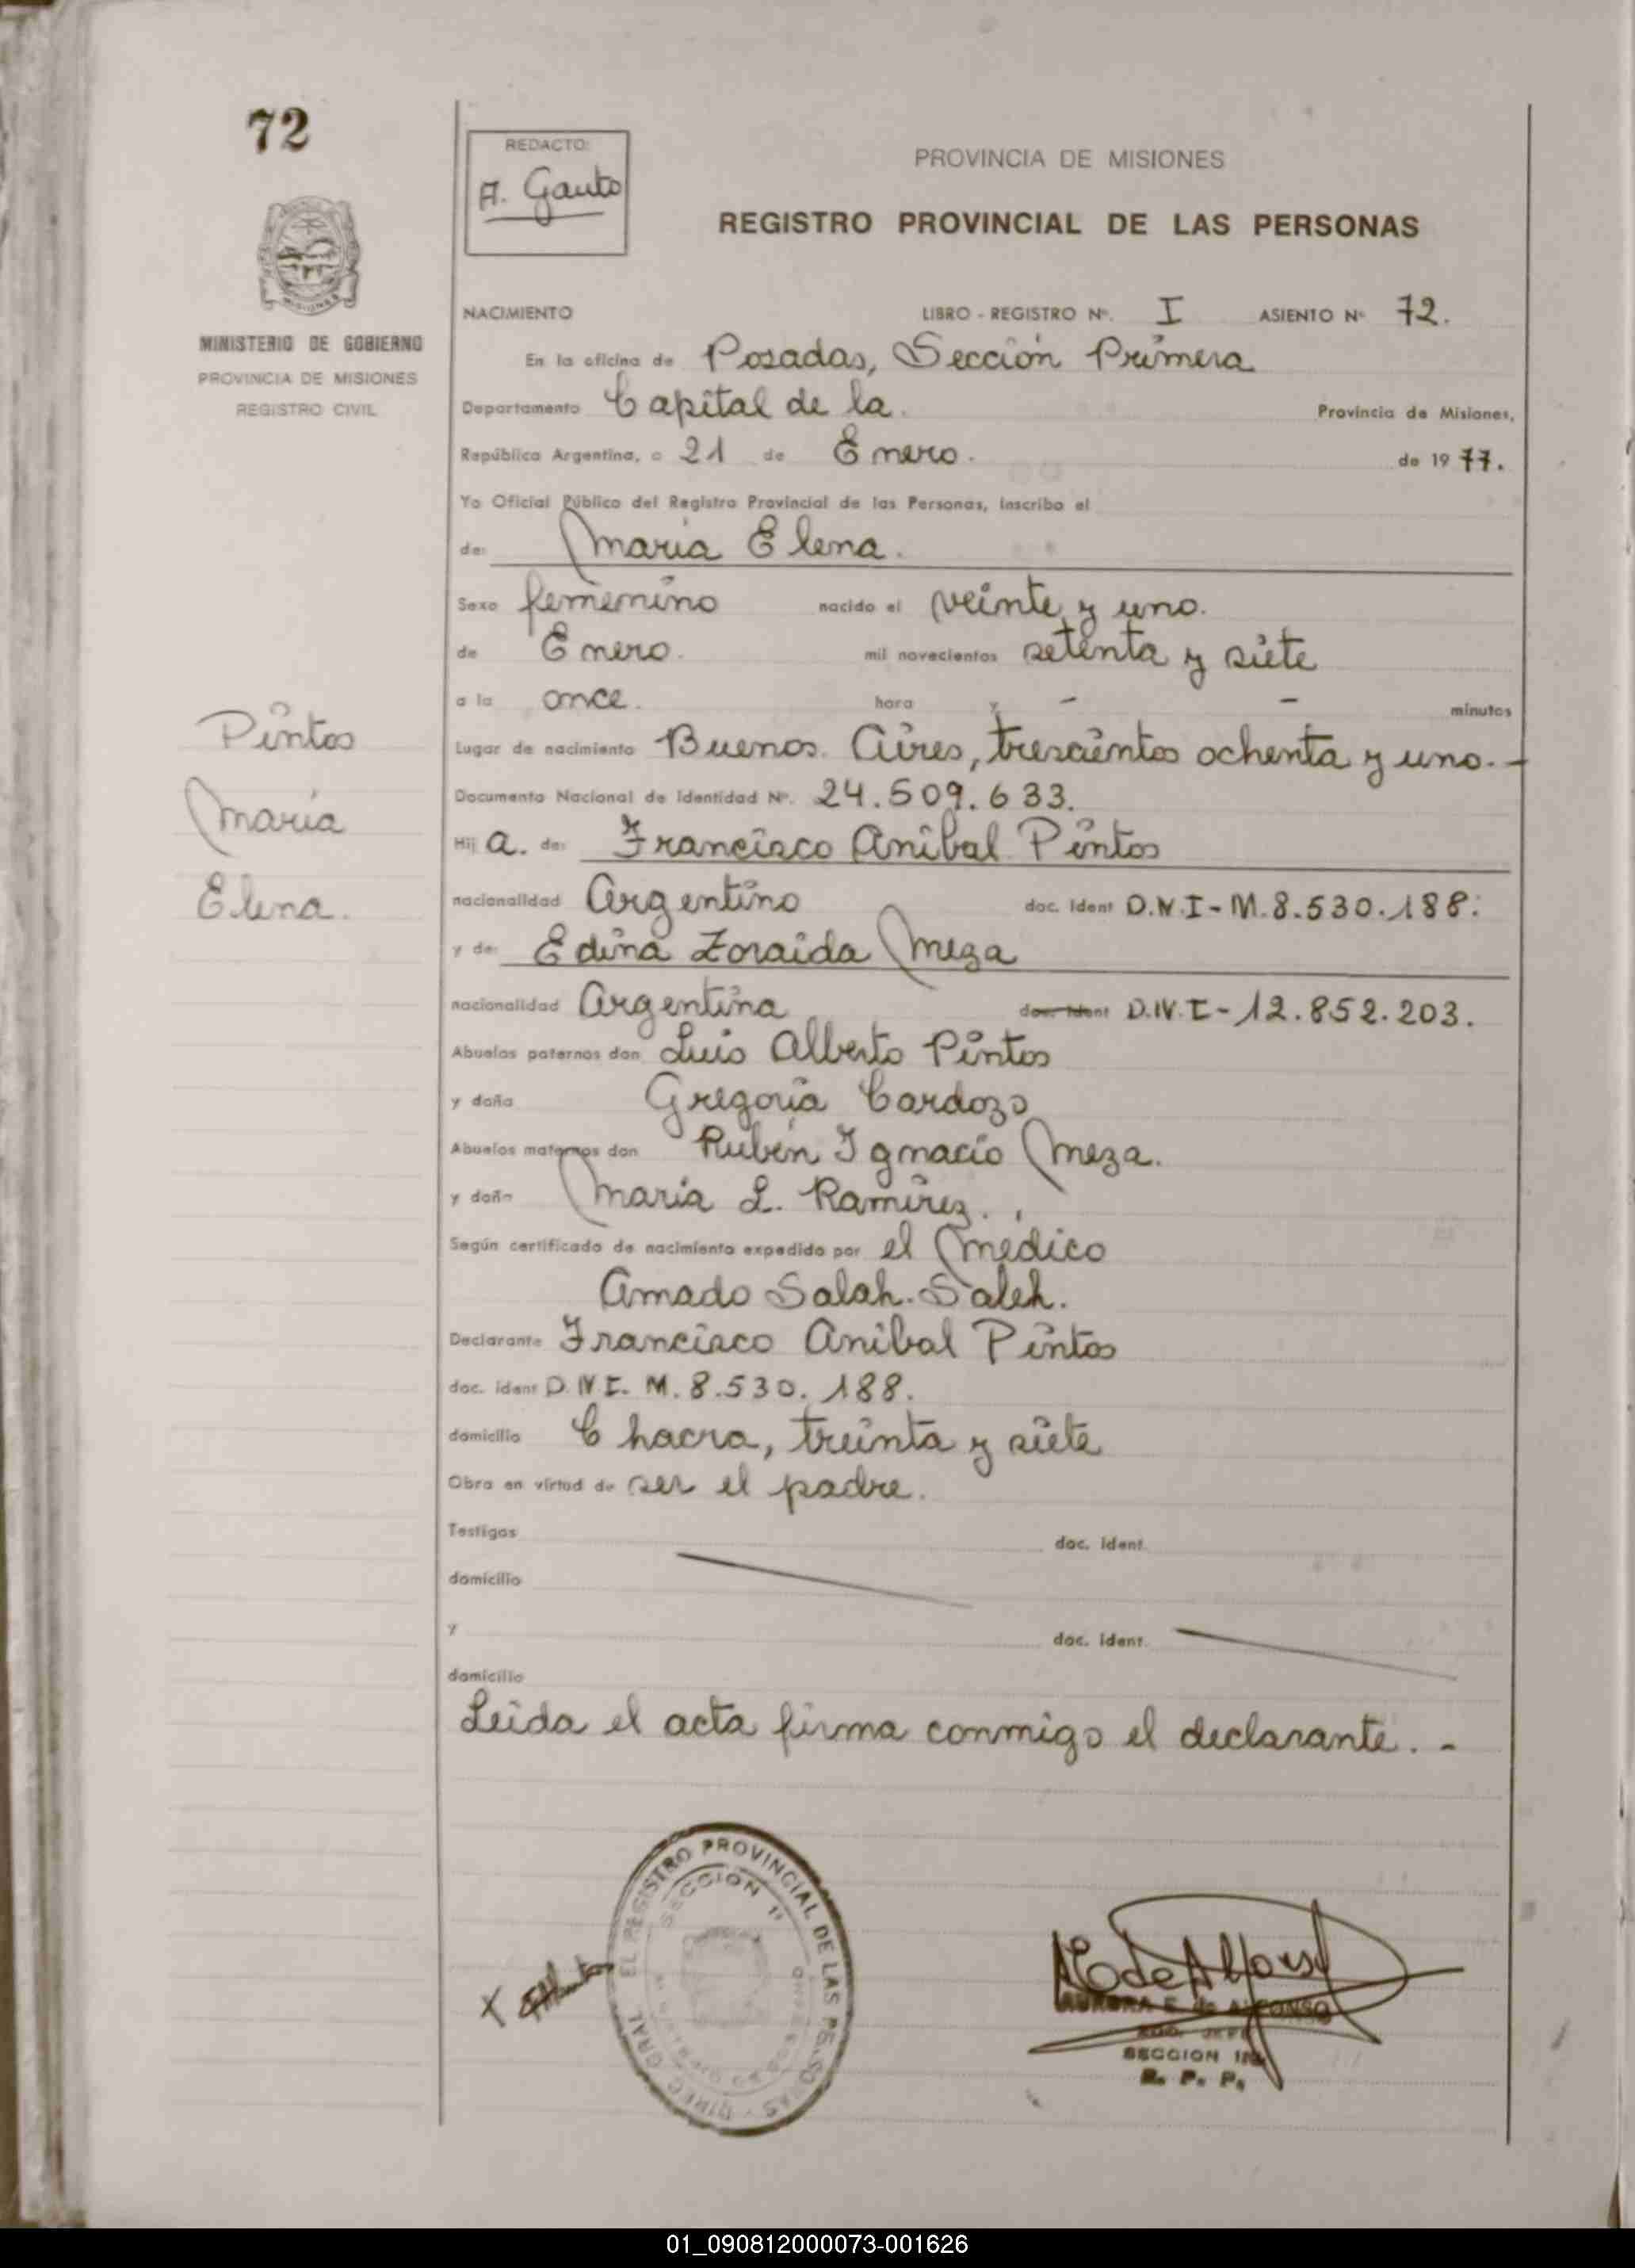 72
REDACTO:
A. Gauto
PROVINCIA DE MISIONES
REGISTRO PROVINCIAL DE LAS PERSONAS
MISIONES
MINISTERIO DE GOBIERNO
PROVINCIA DE MISIONES
REGISTRO CIVIL
NACIMIENTO LIBRO - REGISTRO Nº. I ASIENTO Nº 72.
En la oficina de Posadas, Sección Primera
Departamento Capital de la. Provincia de Misiones,
República Argentina, a 21 de Enero. de 1977.
Yo Oficial Público del Registro Provincial de las Personas, inscribo el
de: María Elena.
Sexo femenino nacido el veinte y uno.
de Enero. mil novecientos setenta y siete
a la once. hora y - - minutos
Lugar de nacimiento Buenos Aires, trescientos ochenta y uno.-
Documento Nacional de Identidad Nº. 24.509.633.
Hij a. de: Francisco Anibal Pintos
nacionalidad Argentino doc. Ident D.N.I-M.8.530.188.
y de: Edina Zoraida Meza
nacionalidad Argentina doc. Ident D.N.I-12.852.203.
Abuelos paternos don Luis Alberto Pintos
y doña Gregoria Cardozo
Abuelos maternos don Rubén Ignacio Meza.
y doña María L. Ramírez.
Según certificado de nacimiento expedido por el médico
Amado Salah.Saleh.
Declarante Francisco Anibal Pintos
doc. ident D.N.I. M.8.530.188.
domicilio Chacra, treinta y siete
Obra en virtud de ser el padre.
Testigos doc. Ident.
domicilio
y doc. Ident.
domicilio
Leida el acta firma conmigo el declarante. -
Pintos
María
Elena.
DIREC. GRAL. DEL REGISTRO PROVINCIAL DE LAS PERSONAS
SECCION 1ª
X
AURORA E. de ALFONSO
SECCION 1ra
R. P. P.
01_090812000073-001626